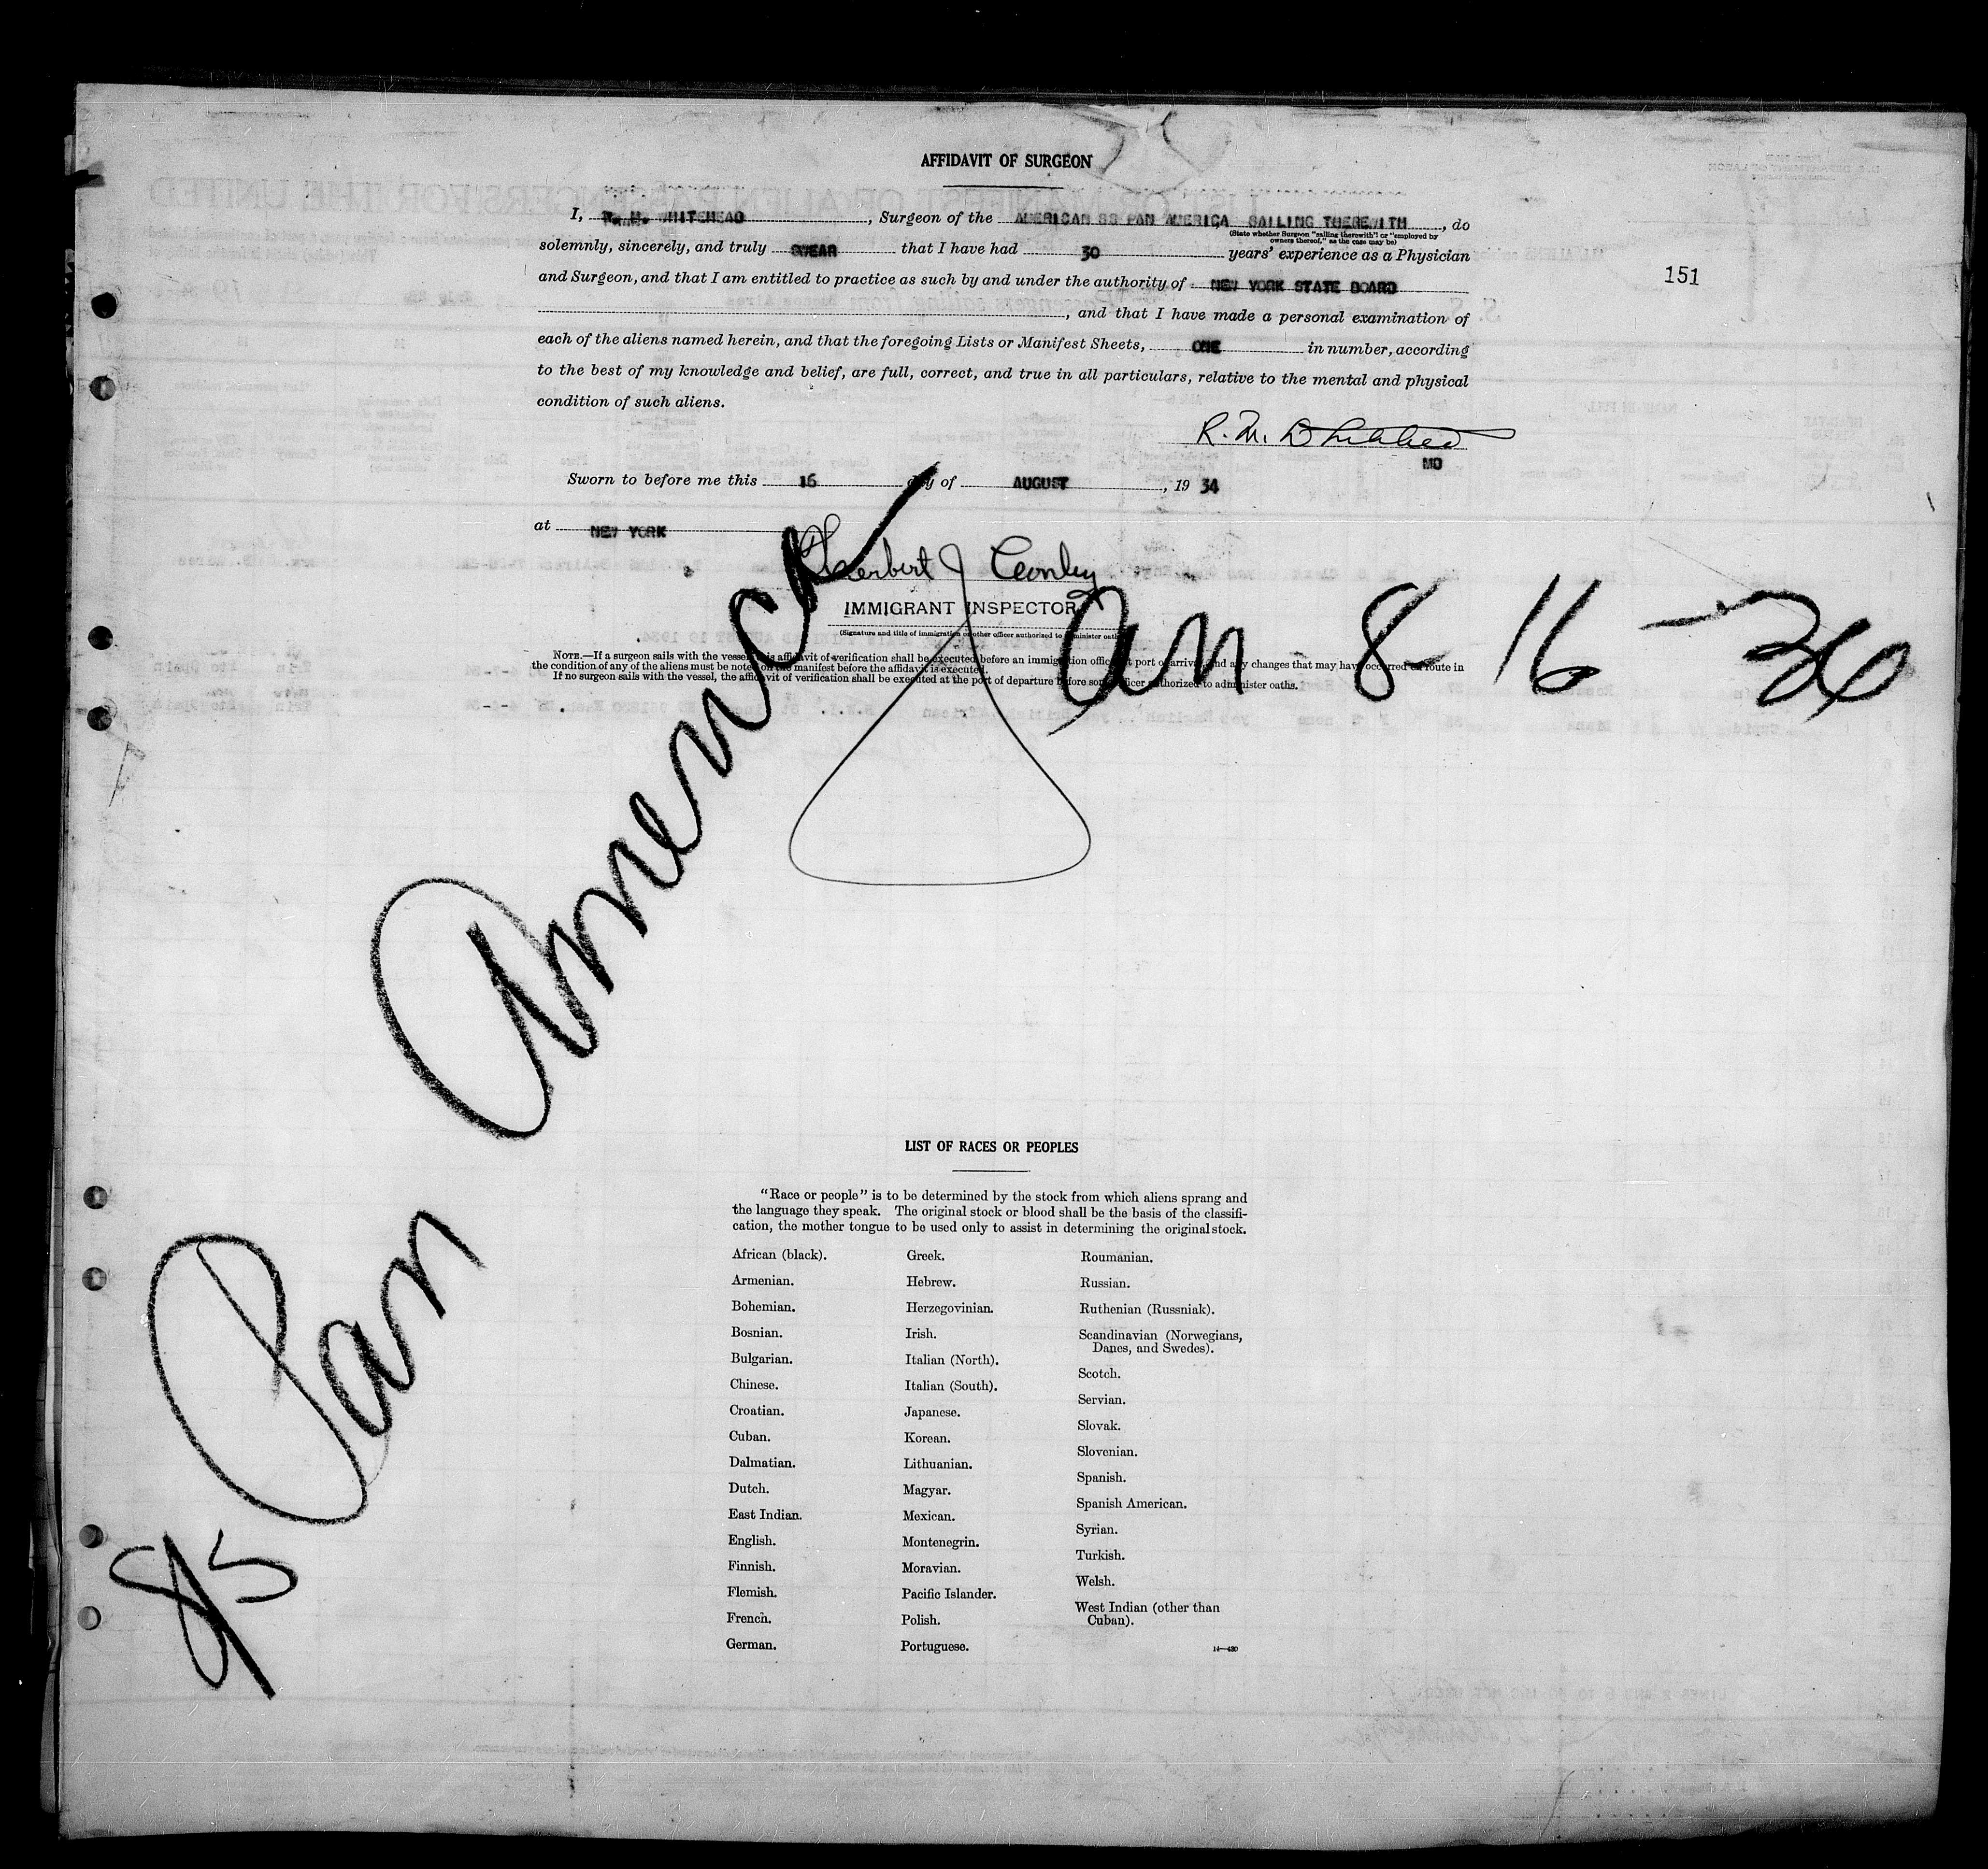 AFFIDAVIT OF SURGEON
I, R. M. WHITEHEAD, Surgeon of the AMERICAN SS PAN AMERICA SAILING THEREWITH, do
(State whether Surgeon "sailing therewith" or "employed by
owners thereof," as the case may be)
solemnly, sincerely, and truly SWEAR that I have had 30 years' experience as a Physician
and Surgeon, and that I am entitled to practice as such by and under the authority of NEW YORK STATE BOARD
151
, and that I have made a personal examination of
each of the aliens named herein, and that the foregoing Lists or Manifest Sheets, ONE in number, according
to the best of my knowledge and belief, are full, correct, and true in all particulars, relative to the mental and physical
condition of such aliens.
R. M. Whitehead
MD
Sworn to before me this 16 day of AUGUST, 19 34
at NEW YORK
Herbert J Conley
IMMIGRANT INSPECTOR
(Signature and title of immigration or other officer authorized to administer oaths)
NOTE.—If a surgeon sails with the vessel this affidavit of verification shall be executed before an immigration officer at port of arrival, and any changes that may have occurred en route in
the condition of any of the aliens must be noted on the manifest before the affidavit is executed.
If no surgeon sails with the vessel, the affidavit of verification shall be executed at the port of departure before some officer authorized to administer oaths.
Pan America
an 8-16-34
8/15
LIST OF RACES OR PEOPLES
"Race or people" is to be determined by the stock from which aliens sprang and
the language they speak. The original stock or blood shall be the basis of the classifi-
cation, the mother tongue to be used only to assist in determining the original stock.
African (black).
Armenian.
Bohemian.
Bosnian.
Bulgarian.
Chinese.
Croatian.
Cuban.
Dalmatian.
Dutch.
East Indian.
English.
Finnish.
Flemish.
French.
German.
Greek.
Hebrew.
Herzegovinian.
Irish.
Italian (North).
Italian (South).
Japanese.
Korean.
Lithuanian.
Magyar.
Mexican.
Montenegrin.
Moravian.
Pacific Islander.
Polish.
Portuguese.
Roumanian.
Russian.
Ruthenian (Russniak).
Scandinavian (Norwegians,
Danes, and Swedes).
Scotch.
Servian.
Slovak.
Slovenian.
Spanish.
Spanish American.
Syrian.
Turkish.
Welsh.
West Indian (other than
Cuban).
14—430